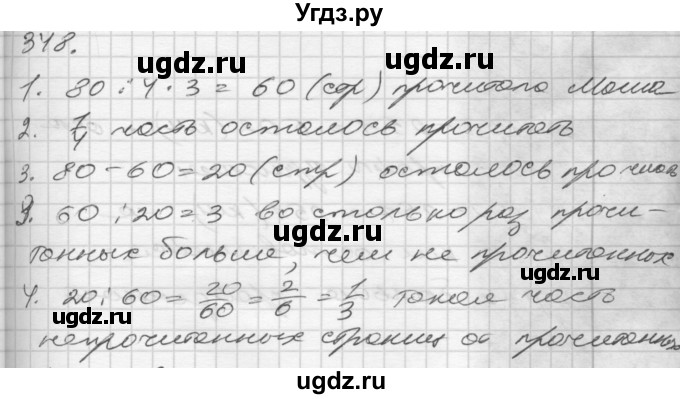 Угдз.ру
348.
ugdz.ru ugdz.ru
1. 80 : 4 · 3 = 60 (стр) прочитала Маша
2. 1/4 часть осталось прочитать
ugdz.ru ugdz.ru
3. 80 - 60 = 20 (стр) осталось прочитать
3. 60 : 20 = 3 во столько раз прочи-
ugdz.ru ugdz.ru
танных больше, чем не прочитанных
4. 20 : 60 = 20/60 = 2/6 = 1/3 такая часть
ugdz.ru ugdz.ru
непрочитанных страниц от прочитанных
ugdz.ru